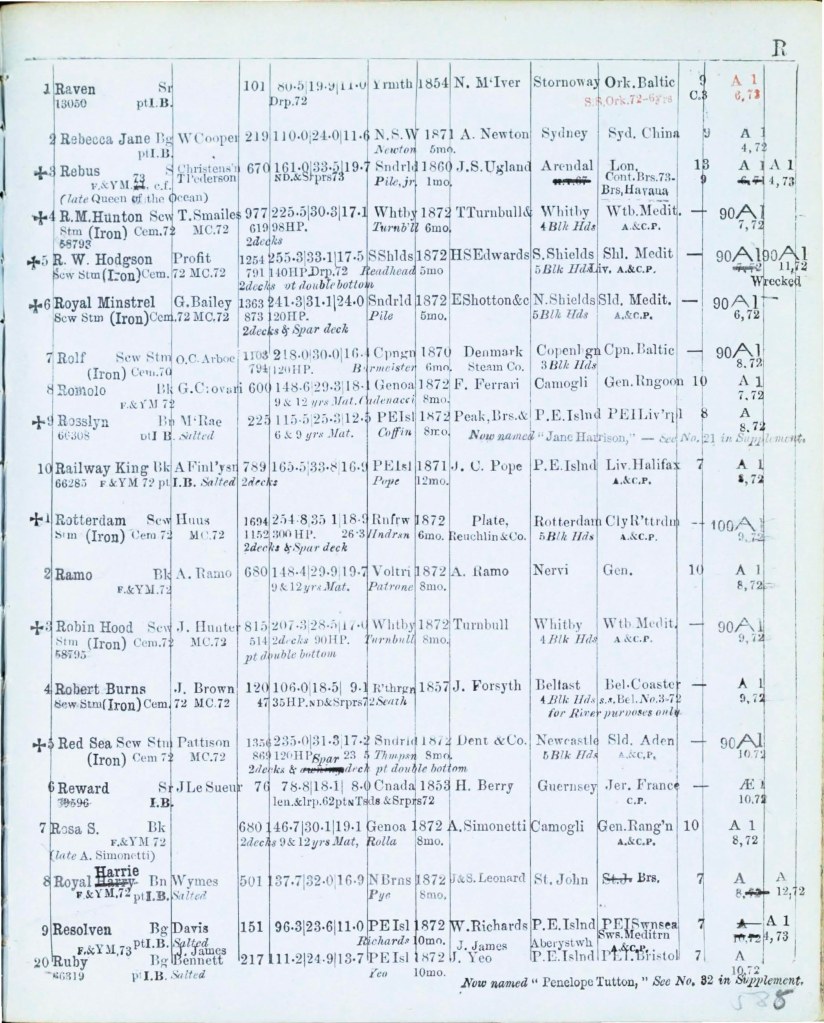 R
1 Raven Sr 101 80·5|19·9|11·0 Yrmth 1854 N. M'Iver Stornoway Ork. Baltic 9 A 1
13050 ptI.B. Drp.72 S.S.Ork.72-6yrs C.3 6,73
2 Rebecca Jane Bg W Cooper 219 110·0|24·0|11·6 N.S.W 1871 A. Newton Sydney Syd. China 9 A 1
ptI.B. Newton 5mo. 4,72
3 Rebus S Christens'n 670 161·0|33·5|19·7 Sndrld 1860 J.S.Ugland Arendal Lon. 13 A 1 A 1
F.&YM. 73 c.f. T Pederson ND.&Srprs73 Pile, jr. 1mo. Cont.Brs.73- 9 4,73
(late Queen of the Ocean) Brs, Havana
4 R.M.Hunton Scw T.Smailes 977 225·5|30·3|17·1 Whtby 1872 TTurnbull& Whitby Wtb.Medit. — 90A1
Stm (Iron) Cem.72 MC.72 619 98HP. Turnb'll 6mo. 4 Blk Hds A.&C.P. 7,72
58793 2decks
5 R. W. Hodgson Profit 1254 255·3|33·1|17·5 SShlds 1872 HSEdwards S.Shields Shl. Medit — 90A1 90A1
Scw Stm (Iron) Cem.72 MC.72 791 140HP.Drp.72 Readhead 5mo 5Blk Hds Liv. A.&C.P. 11,72
2decks ot double bottom Wrecked
6 Royal Minstrel G. Bailey 1363 241·3|31·1|24·0 Sndrld 1872 EShotton&c N.Shields Sld. Medit. — 90A1
Scw Stm (Iron) Cem.72 MC.72 873 120HP. Pile 5mo. 5Blk Hds A.&C.P. 6,72
2decks & Spar deck
7 Rolf Scw Stm O.C. Arboe 1103 218·0|30·0|16·4 Cpngn 1870 Denmark Copenhgn Cpn. Baltic — 90A1
(Iron) Cem.70 794 120HP. Burmeister 6mo. Steam Co. 3Blk Hds 8,72
8 Romolo Bk G. C:ovari 600 148·6|29·3|18·1 Genoa 1872 F. Ferrari Camogli Gen. Rngoon 10 A 1
F.&YM 72 9 & 12 yrs Mat. Cadenacci 8mo. 7,72
9 Rosslyn Bn M'Rae 225 115·5|25·3|12·5 PEIsl 1872 Peak, Brs.& P.E.Islnd PEILiv'rpl 8 A
66308 ptI B. Salted 6 & 9 yrs Mat. Coffin 8mo. 8,72
Now named "Jane Harrison," — See No. 21 in Supplement.
10 Railway King Bk A Finl'ysn 789 165·5|33·8|16·9 PEIsl 1871 J. C. Pope P.E.Islnd Liv. Halifax 7 A 1
66285 F.&YM 72 ptI.B. Salted 2decks Pope 12mo. A.&C.P. 8,72
1 Rotterdam Scw Huus 1694 254·8|35·1|18·9 Rnfrw 1872 Plate, Rotterdam Cly R'ttrdm — 100A1
Stm (Iron) Cem 72 MC.72 1152 300HP. 26·3 Hndrsn 6mo. Reuchlin & Co. 5Blk Hds A.&C.P. 9,72
2decks & Spar deck
2 Ramo Bk A. Ramo 680 148·4|29·9|19·7 Voltri 1872 A. Ramo Nervi Gen. 10 A 1
F.&YM.72 9 & 12 yrs Mat. Patrone 8mo. 8,72
3 Robin Hood Scw J. Hunter 815 207·3|28·5|17·0 Whtby 1872 Turnbull Whitby Wtb Medit. — 90A1
Stm (Iron) Cem.72 MC.72 514 2decks 90HP. Turnbull 8mo. 4 Blk Hds A &C.P. 9,72
58795 pt double bottom
4 Robert Burns J. Brown 120 106·0|18·5| 9·1 R'thrgn 1857 J. Forsyth Belfast Bel. Coaster — A 1
Scw Stm (Iron) Cem. 72 MC.72 47 35HP. ND&Srprs72 Seath 4 Blk Hds s.s. Bel. No.3-72 9,72
for River purposes only.
5 Red Sea Scw Stm Pattison 1356 235·0|31·3|17·2 Sndrld 1872 Dent & Co. Newcastle Sld. Aden — 90A1
(Iron) Cem 72 MC.72 869 120HP 23 5 Thmpsn 8mo. 5Blk Hds A.&C.P. 10,72
2decks & Spar deck pt double bottom
6 Reward Sr J Le Sueur 76 78·8|18·1| 8·0 Cnada 1853 H. Berry Guernsey Jer. France — Æ 1
39596 I.B. len.&lrp.62ptNTsds &Srprs72 C.P. 10,72
7 Rosa S. Bk 680 146·7|30·1|19·1 Genoa 1872 A. Simonetti Camogli Gen. Rang'n 10 A 1
F.&YM 72 2decks 9 & 12 yrs Mat, Rolla 8mo. A.&C.P. 8,72
(late A. Simonetti)
8 Royal Harrie Bn Wymes 501 137·7|32·0|16·9 NBrns 1872 J&S. Leonard St. John St.J. Brs. 7 A A
F.&YM.72 ptI.B. Salted Pye 8mo. 12,72
9 Resolven Bg Davis 151 96·3|23·6|11·0 PEIsl 1872 W. Richards P.E. Islnd PEISwnsea 7 A 1
F.&YM,73 ptI.B. Salted Richards 10mo. J. James Aberystwh Sws. Meditrn 10,72 4,73
D. James A.&C.P.
20 Ruby Bg Bennett 217 111·2|24·9|13·7 PEIsl 1872 J. Yeo P.E.Islnd PEI. Bristol 7 A
66319 ptI.B. Salted Yeo 10mo. 10,72
Now named "Penelope Tutton," See No. 32 in Supplement.